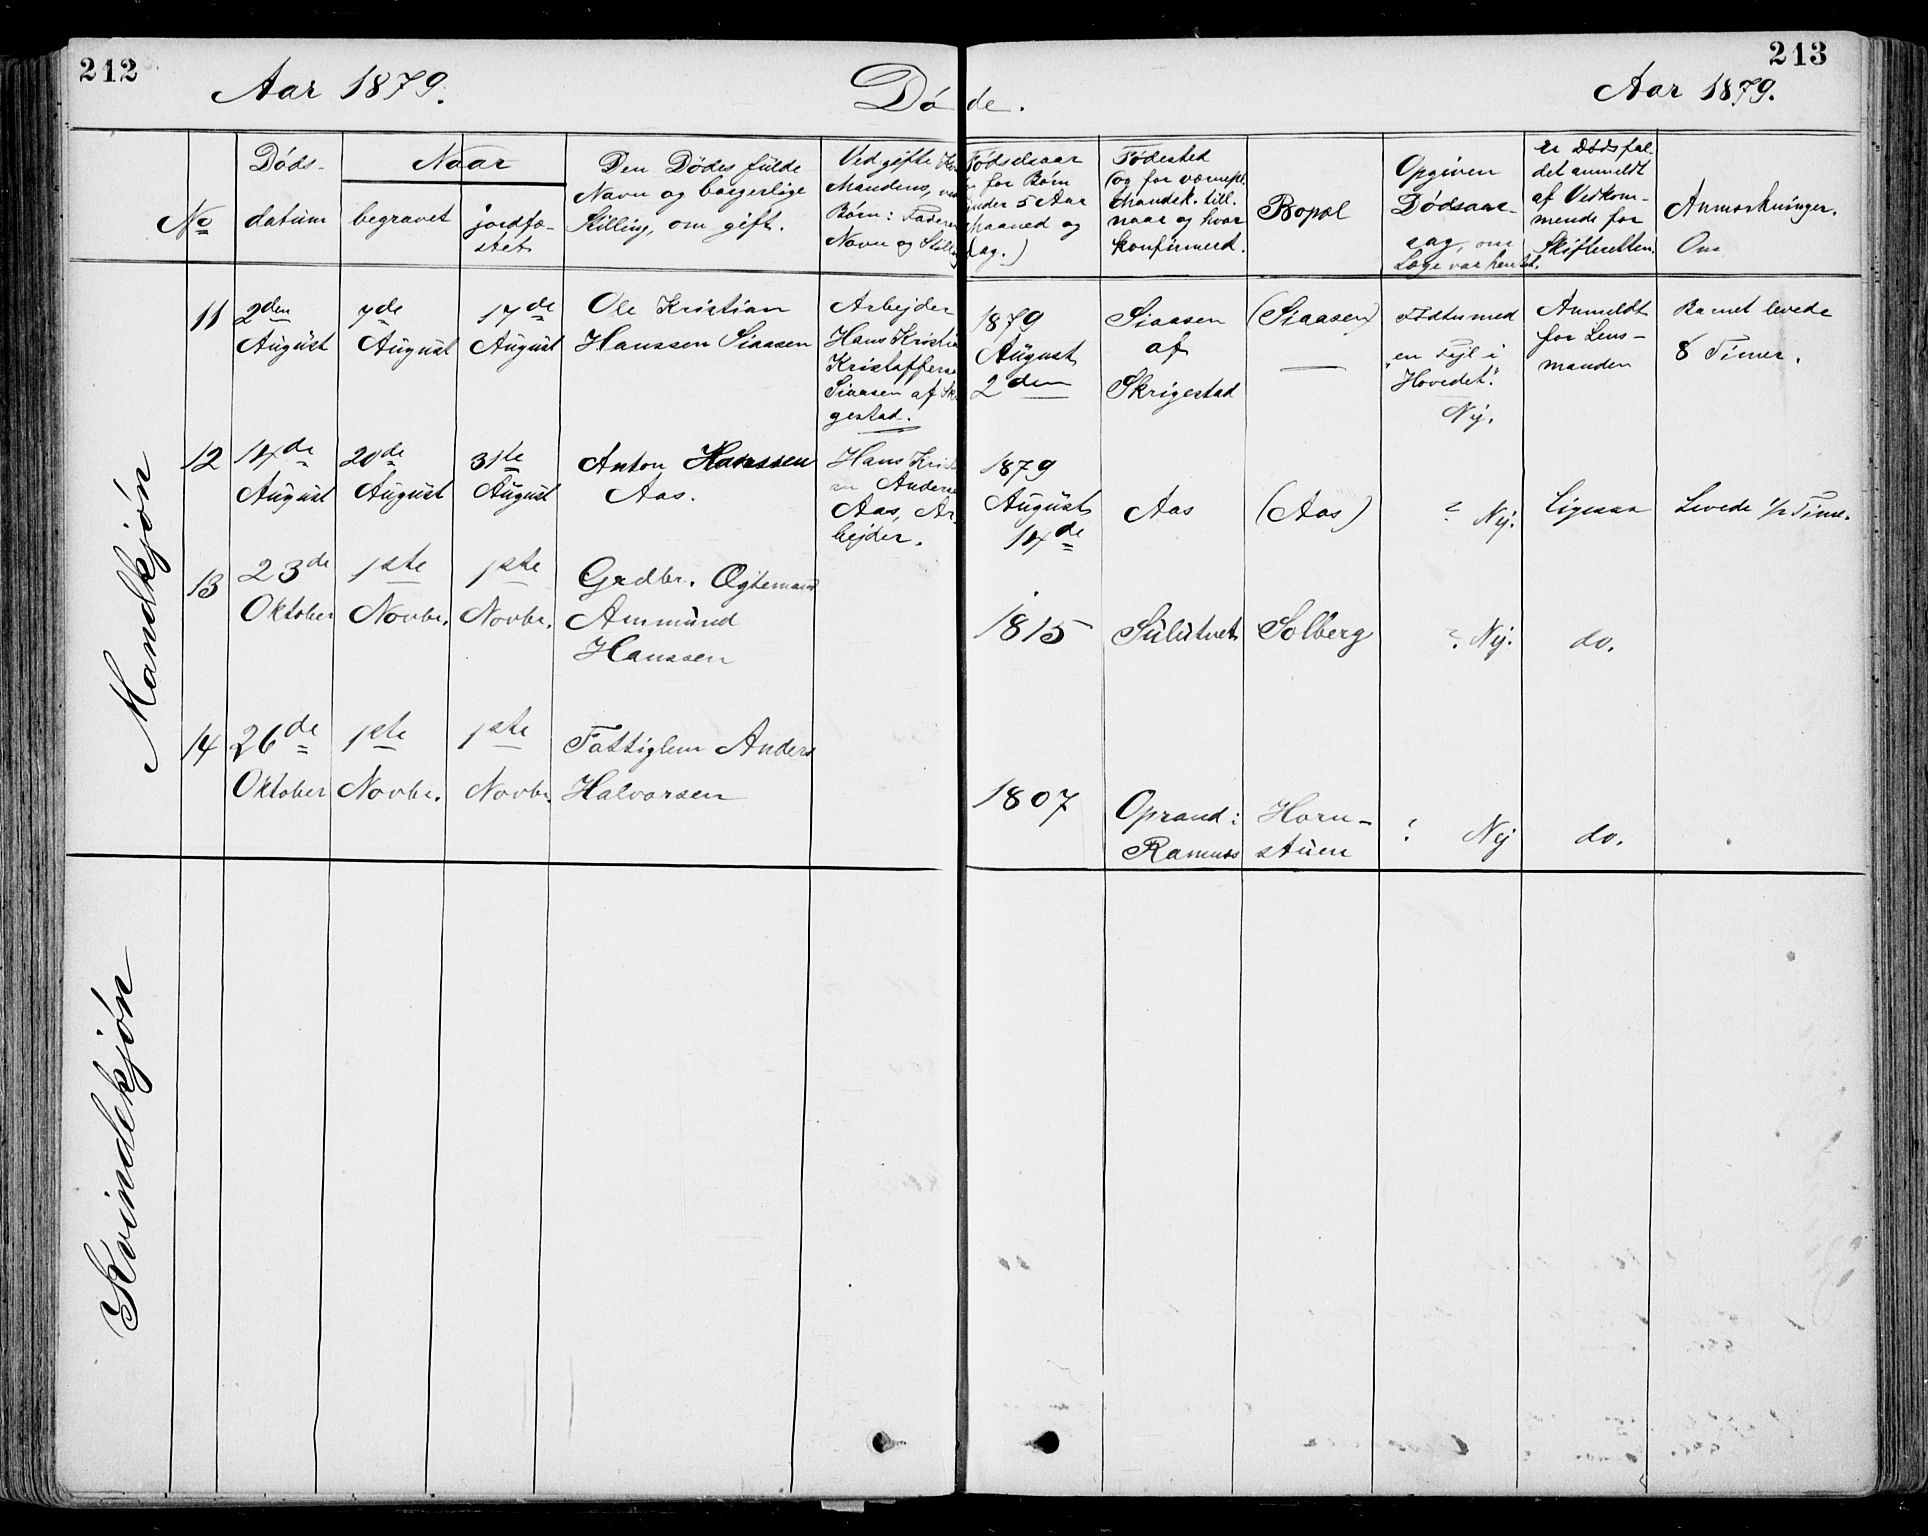 212
213
Aar 1879.
Døde.
Aar 1879.
No
Døds-
datum
Naar
begravet
jordfæ-
stet
Den Dødes fulde
Navn og borgerlige
Stilling, om gift.
Ved gifte
Mandens, ved
Børn: Faderens
Navn og Stilling
Fødselsaar
for Børn
under 5 Aar
Maaned og
Dag.)
Fødested
(og for værnepl.
Mandsk. till.
naar og hvor
konfirmerd.
Bopæl
Opgiven
Dødsaar-
sag, om
Læge var hentet.
Er Dødsfal-
det anmeldt
af Vedkom-
mende for
Skifteretten.
Anmærkninger.
Om
Mandkjøn
11
2den
August
7de
August
17de
August
Ole Kristian
Hanssen Siaasen
Arbejder
Hans Kristian
Kristoffersen
Siaasen af Skri
gestad.
1879
August
2den
Siaasen
af
Skrigestad
(Siaasen)
Født med
en Fejl i
"Hovedet".
Nej.
Anmeldt
for Lens-
manden
Barnet levede
8 Timer.
12
14de
August
20de
August
31te
August
Anton Hanssen
Aas.
Hans Kristi
an Andersen
Aas, Ar-
bejder.
1879
August
14de
Aas
(Aas)
? Nej.
Ligesaa
Levede 1/2 Time.
13
23de
Oktober
1ste
Novbr.
1ste
Novbr.
Grdbr. Ægtemand
Ammund
Hanssen
1815
Sulutvet
Solberg
? Nej.
do.
14
26de
Oktober
1ste
Novbr.
1ste
Novbr.
Fattiglem Anders
Halvorsen
1807
Oprand i
Ramnæs
Horn-
stuen
? Nej
do.
Kvindekjøn